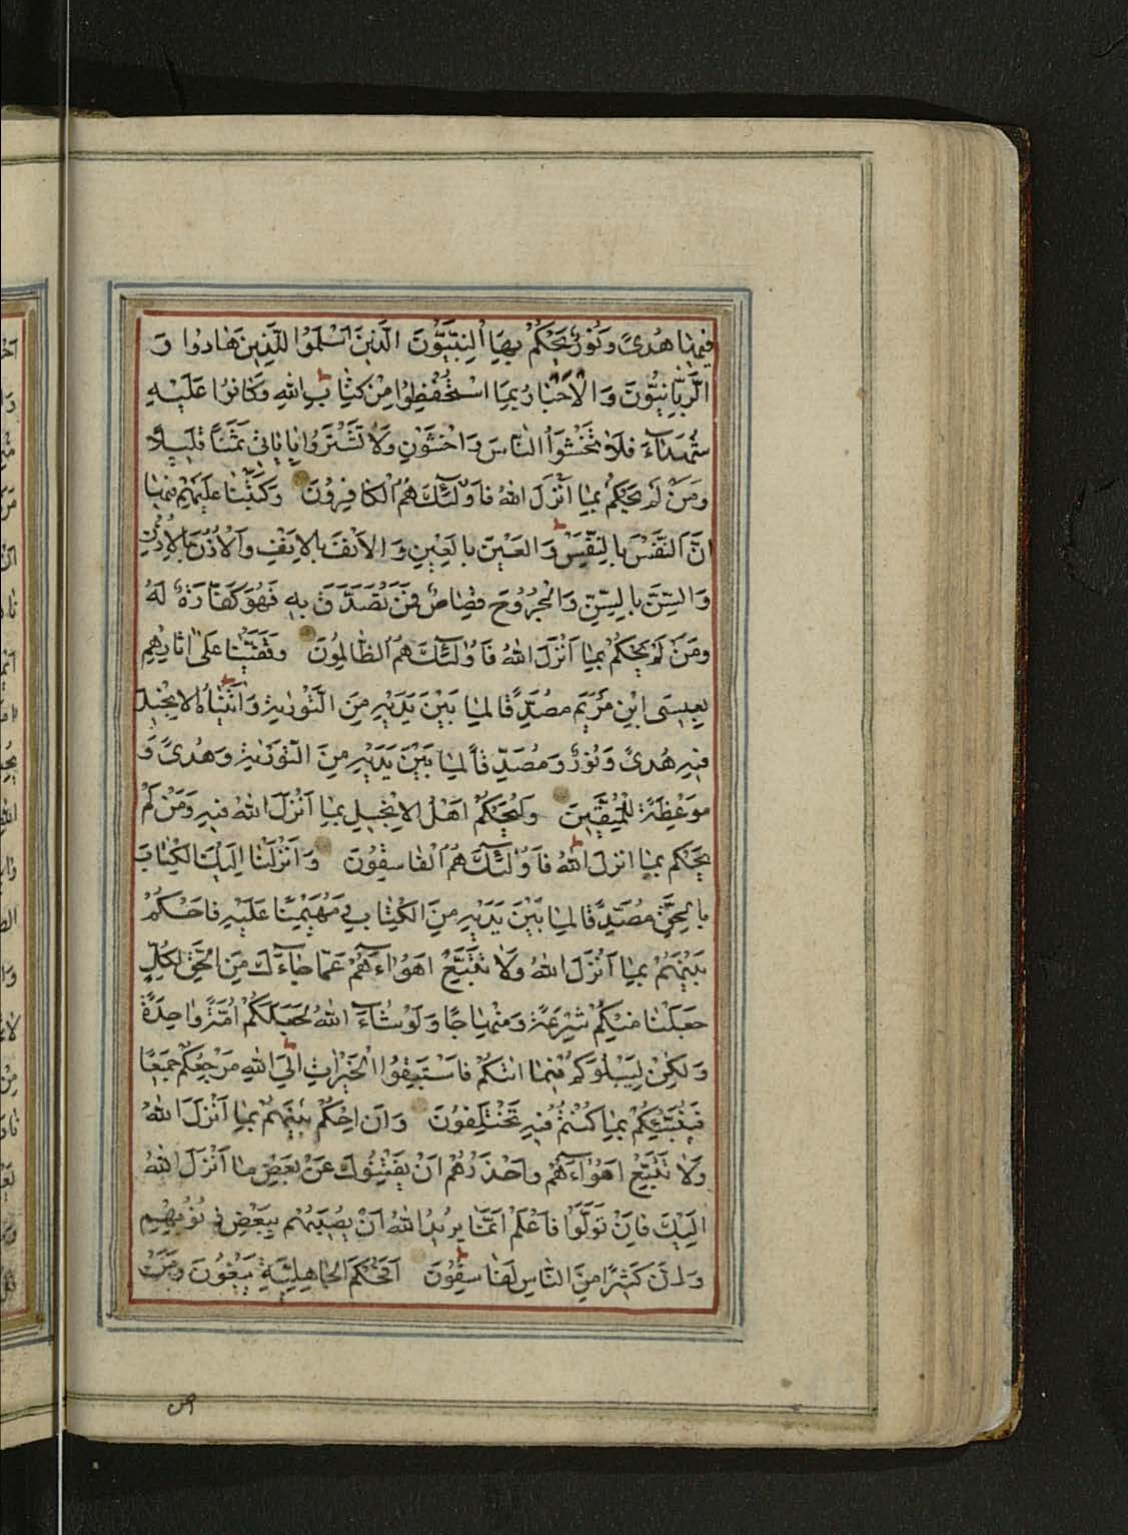 فيها هُدىً وَنُورٌ يَحْكُمُ بِهَا النَّبِيُّونَ الَّذِينَ اَسْلَمُوا لِلَّذِينَ هَادوا وَ
الرَّبَّانِيُّونَ وَ الْاَحْبَارُ بِمَا اسْتُحْفِظُوا مِنْ كِتَابِ اللهِ وَكَانُوا عَلَيْهِ
شُهَدَاءَ فَلَا تَخْشَوُا النَّاسَ وَاخْشَوْنِ وَلَا تَشْتَرُوا بِاٰيَاتِي ثَمَنًا قَلِيلًا
وَمَنْ لَمْ يَحْكُمْ بِمَا اَنْزَلَ اللهُ فَاُولٰئِكَ هُمُ الْكَافِرُونَ وَكَتَبْنَا عَلَيْهِمْ فِيهَا
اَنَّ النَّفْسَ بِالنَّفْسِ وَ الْعَيْنَ بِالْعَيْنِ وَ الْاَنْفَ بِالْاَنْفِ وَالْاُذُنَ بِالْاُذُنِ
وَ السِّنَّ بِالسِّنِّ وَالْجُرُوحَ قِصَاصٌ فَمَنْ تَصَدَّقَ بِهِ فَهُوَ كَفَّارَةٌ لَهُ
وَمَنْ لَمْ يَحْكُمْ بِمَا اَنْزَلَ اللهُ فَاُولٰئِكَ هُمُ الظَّالِمُونَ وَقَفَّيْنَا عَلَىٰ اٰثَارِهِمْ
بِعِيسَى ابْنِ مَرْيَمَ مُصَدِّقًا لِمَا بَيْنَ يَدَيْهِ مِنَ التَّوْرٰيةِ وَاٰتَيْنَاهُ الْاِنْجِيلَ
فِيهِ هُدىً وَنُورٌ وَمُصَدِّقًا لِمَا بَيْنَ يَدَيْهِ مِنَ التَّوْرٰيةِ وَهُدىً وَ
مَوْعِظَةً لِلْمُتَّقِينَ وَلْيَحْكُمْ اَهْلُ الْاِنْجِيلِ بِمَا اَنْزَلَ اللهُ فِيهِ وَمَنْ لَمْ
يَحْكُمْ بِمَا اَنْزَلَ اللهُ فَاُولٰئِكَ هُمُ الْفَاسِقُونَ وَ اَنْزَلْنَا اِلَيْكَ الْكِتَابَ
بِالْحَقِّ مُصَدِّقًا لِمَا بَيْنَ يَدَيْهِ مِنَ الْكِتَابِ وَمُهَيْمِنًا عَلَيْهِ فَاحْكُمْ
بَيْنَهُمْ بِمَا اَنْزَلَ اللهُ وَلَا تَتَّبِعْ اَهْوَاءَهُمْ عَمَّا جَاءَكَ مِنَ الْحَقِّ لِكُلٍّ
جَعَلْنَا مِنْكُمْ شِرْعَةً وَمِنْهَاجًا وَلَوْ شَاءَ اللهُ لَجَعَلَكُمْ اُمَّةً وَاحِدَةً
وَلٰكِنْ لِيَبْلُوَكُمْ فِيمَا اٰتٰكُمْ فَاسْتَبِقُوا الْخَيْرَاتِ اِلَى اللهِ مَرْجِعُكُمْ جَمِيعًا
فَيُنَبِّئُكُمْ بِمَا كُنْتُمْ فِيهِ تَخْتَلِفُونَ وَاَنِ احْكُمْ بَيْنَهُمْ بِمَا اَنْزَلَ اللهُ
وَلَا تَتَّبِعْ اَهْوَاءَهُمْ وَاحْذَرْهُمْ اَنْ يَفْتِنُوكَ عَنْ بَعْضِ مَا اَنْزَلَ اللهُ
اِلَيْكَ فَاِنْ تَوَلَّوْا فَاعْلَمْ اَنَّمَا يُرِيدُ اللهُ اَنْ يُصِيبَهُمْ بِبَعْضِ ذُنُوبِهِمْ
وَاِنَّ كَثِيرًا مِنَ النَّاسِ لَفَاسِقُونَ اَفَحُكْمَ الْجَاهِلِيَّةِ يَبْغُونَ وَمَنْ